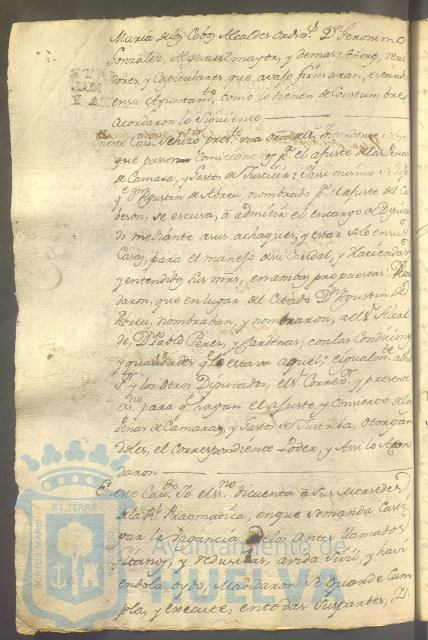 Maria de los Cobos Alcaldes ordin.s D.n Geronimo
Gonzalez, Alguacil mayor, y demas Señores, regi
dores, y Capitulares que avajo firmaran, estando
en su Ayuntam.to como lo tienen de Constumbre
Acordaron lo siguiente
En este Cav.do se hizo pres.te una orden del s.r Intendente
que pasen a p.a el ajuste de las Penas
de Camara, y Gastos de Justicia; y asi mismo se
q.e D.n Agustin de Abreu, nombrado p.a el ajuste del Ca
beson, se escusa, a admitir el encargo de Diputa
do mediante a sus achaques, y estar solo en su
Casa, para el manejo de su Caudal, y Haciendas
y entendido sus mrds, en ambas propuestas: Acor
daron, que en lugar del Citado D.n Agustin de
Abreu, nombraban, y nombraron, a el s.r Alcal
de D.n Pablo Peres, y Cardenas; con las Condiciones
y qualidades q.e lo estava aquel; e igualm.te a dho
s.r y los otros Diputados, el s.r Correx.or y presente
ess.no para q.e hagan el ajuste y Convenio de las
Penas de Camara, y Gastos de Justicia, Otorgan
doles, el Correspondiente Poder, y Assi lo Acor
daron
En este Cav.do Yo el ess.no di cuenta a Sus Mercedes
de la R.l Pragmatica, en que se manda Casti
gar la Vagancia, de los Antes llamados
Gitanos, y reducirlos, a vida Sivil, y havi
endola oydo, Mandaron se Guarde Cum
pla, y execute, en todas sus partes,
Ayuntamiento de
HUELVA
PORTUS MARIS
ET TERRÆ